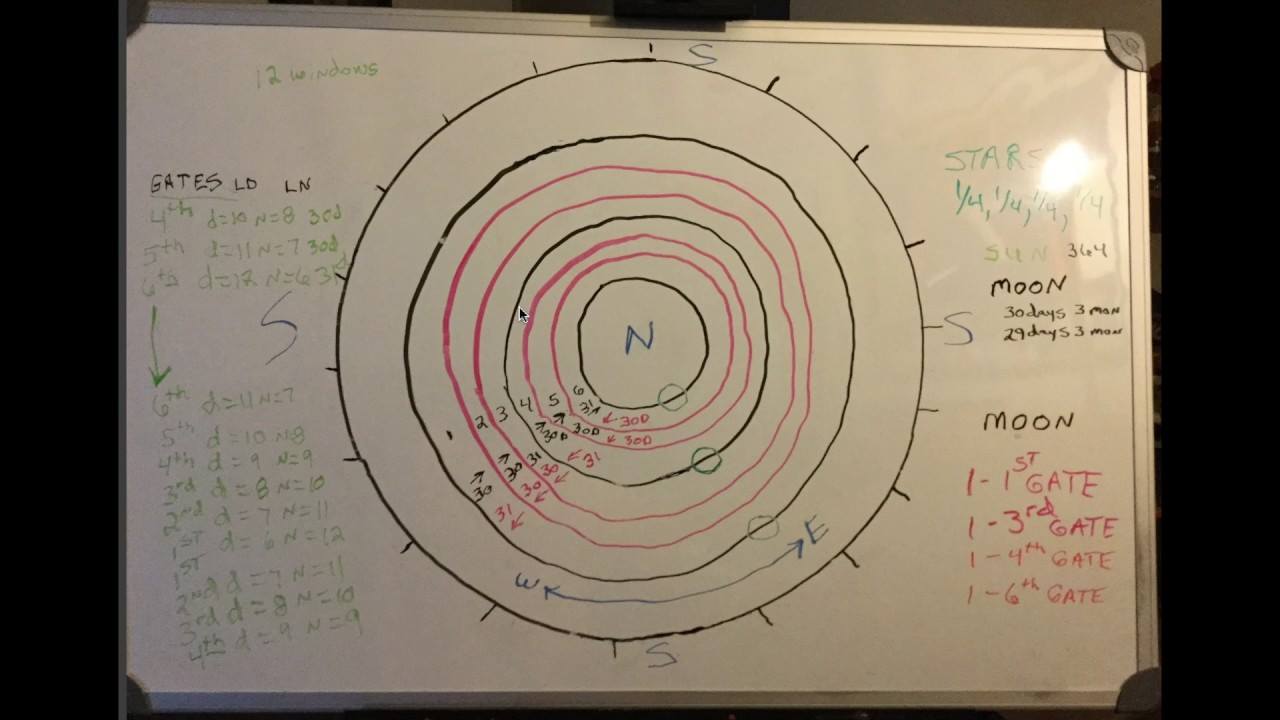 12 windows
S
GATES LD LN
4th d=10 N=8 30d
5th d=11 N=7 30d
6th d=12 N=6 31d
S
6th d=11 N=7
5th d=10 N=8
4th d=9 N=9
3rd d=8 N=10
2nd d=7 N=11
1ST d=6 N=12
1ST
2nd d=7 N=11
3rd d=8 N=10
4th d=9 N=9
N
2 3 4 5 6
31
30D 30D
30D 30D
30 31 30 31
30 30
31
W E
S
S
STARS
1/4, 1/4, 1/4, 1/4
SUN 364
MOON
30days 3 mon
29days 3 mon
MOON
1 - 1ST GATE
1 - 3rd GATE
1 - 4th GATE
1 - 6th GATE